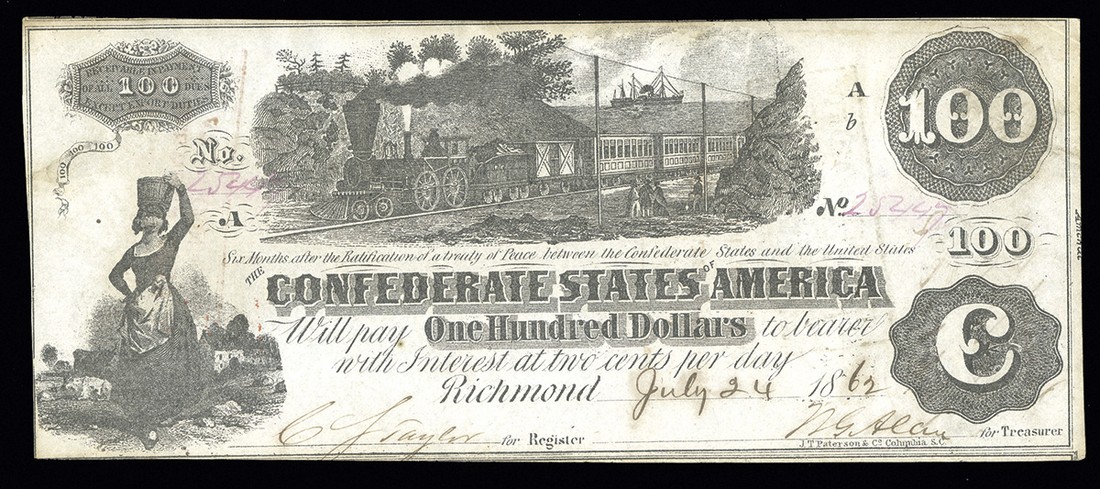 RECEIVABLE IN PAYMENT
OF ALL 100 DUES
EXCEPT EXPORT DUTIES
100 100 100
No.
A
A
b
100
No
100
Six Months after the Ratification of a treaty of Peace between the Confederate States and the United States
THE CONFEDERATE STATES OF AMERICA
Will pay One Hundred Dollars to bearer
with Interest at two cents per day
Richmond July 24 1862
C
for Register
for Treasurer
J.T. Paterson & Co. Columbia S.C.